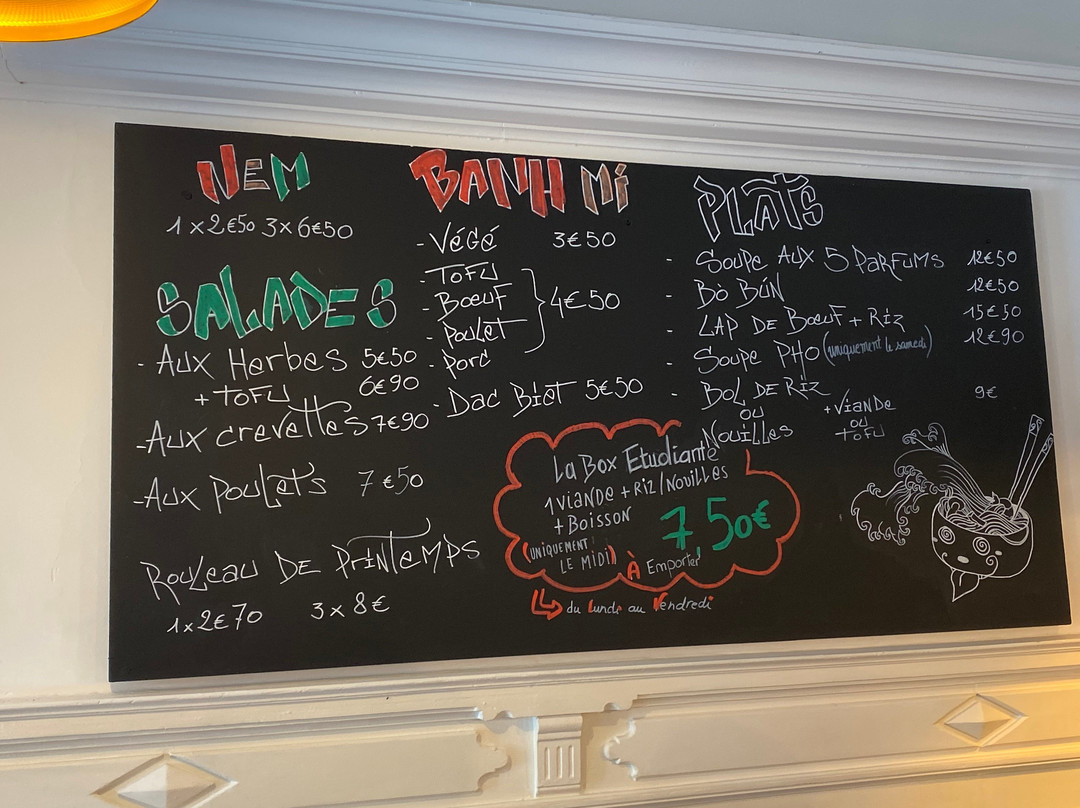 NEM
1 x 2€50 3 x 6€50
SALADES
- Aux Herbes 5€50
+ TOFU 6€90
- Aux crevettes 7€90
- Aux Poulets 7€50
Rouleau DE PrinTEMPS
1 x 2€70 3 x 8€
BANH Mí
- Végé 3€50
- TOFU
- Bœuf
- Poulet
- Porc
4€50
- Dac Biet 5€50
La Box Etudiante
1 Viande + Riz / Nouilles
+ Boisson
(UNIQUEMENT
LE MIDI)
7 50€
À Emporter
du lundi au Vendredi
PLATS
- Soupe AUX 5 PARFUMS 12€50
- Bò BÚN 12€50
- LAP DE Bœuf + Riz 15€50
- Soupe PHO (uniquement le samedi) 12€90
- BOL DE RIZ 9€
ou
Nouilles
+ Viande
ou
+ TOFU